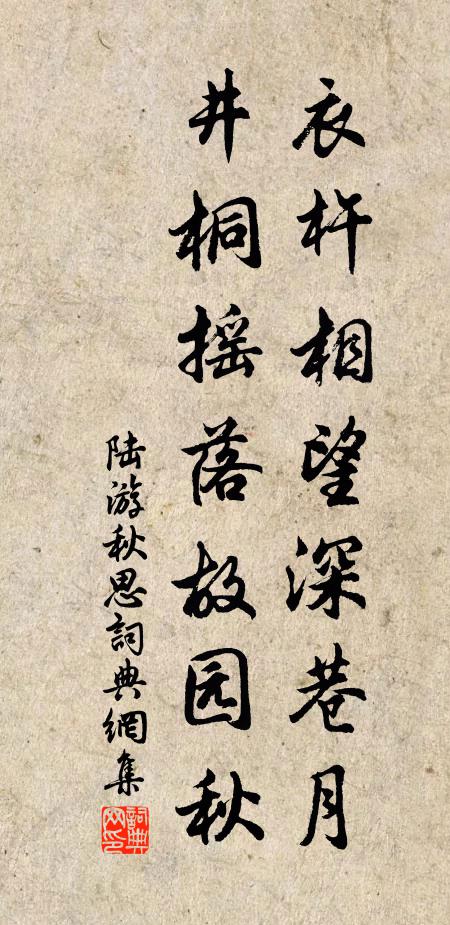 衣杵相望深巷月
井桐摇落故园秋
陆游秋思詞典網集
詞典
网印